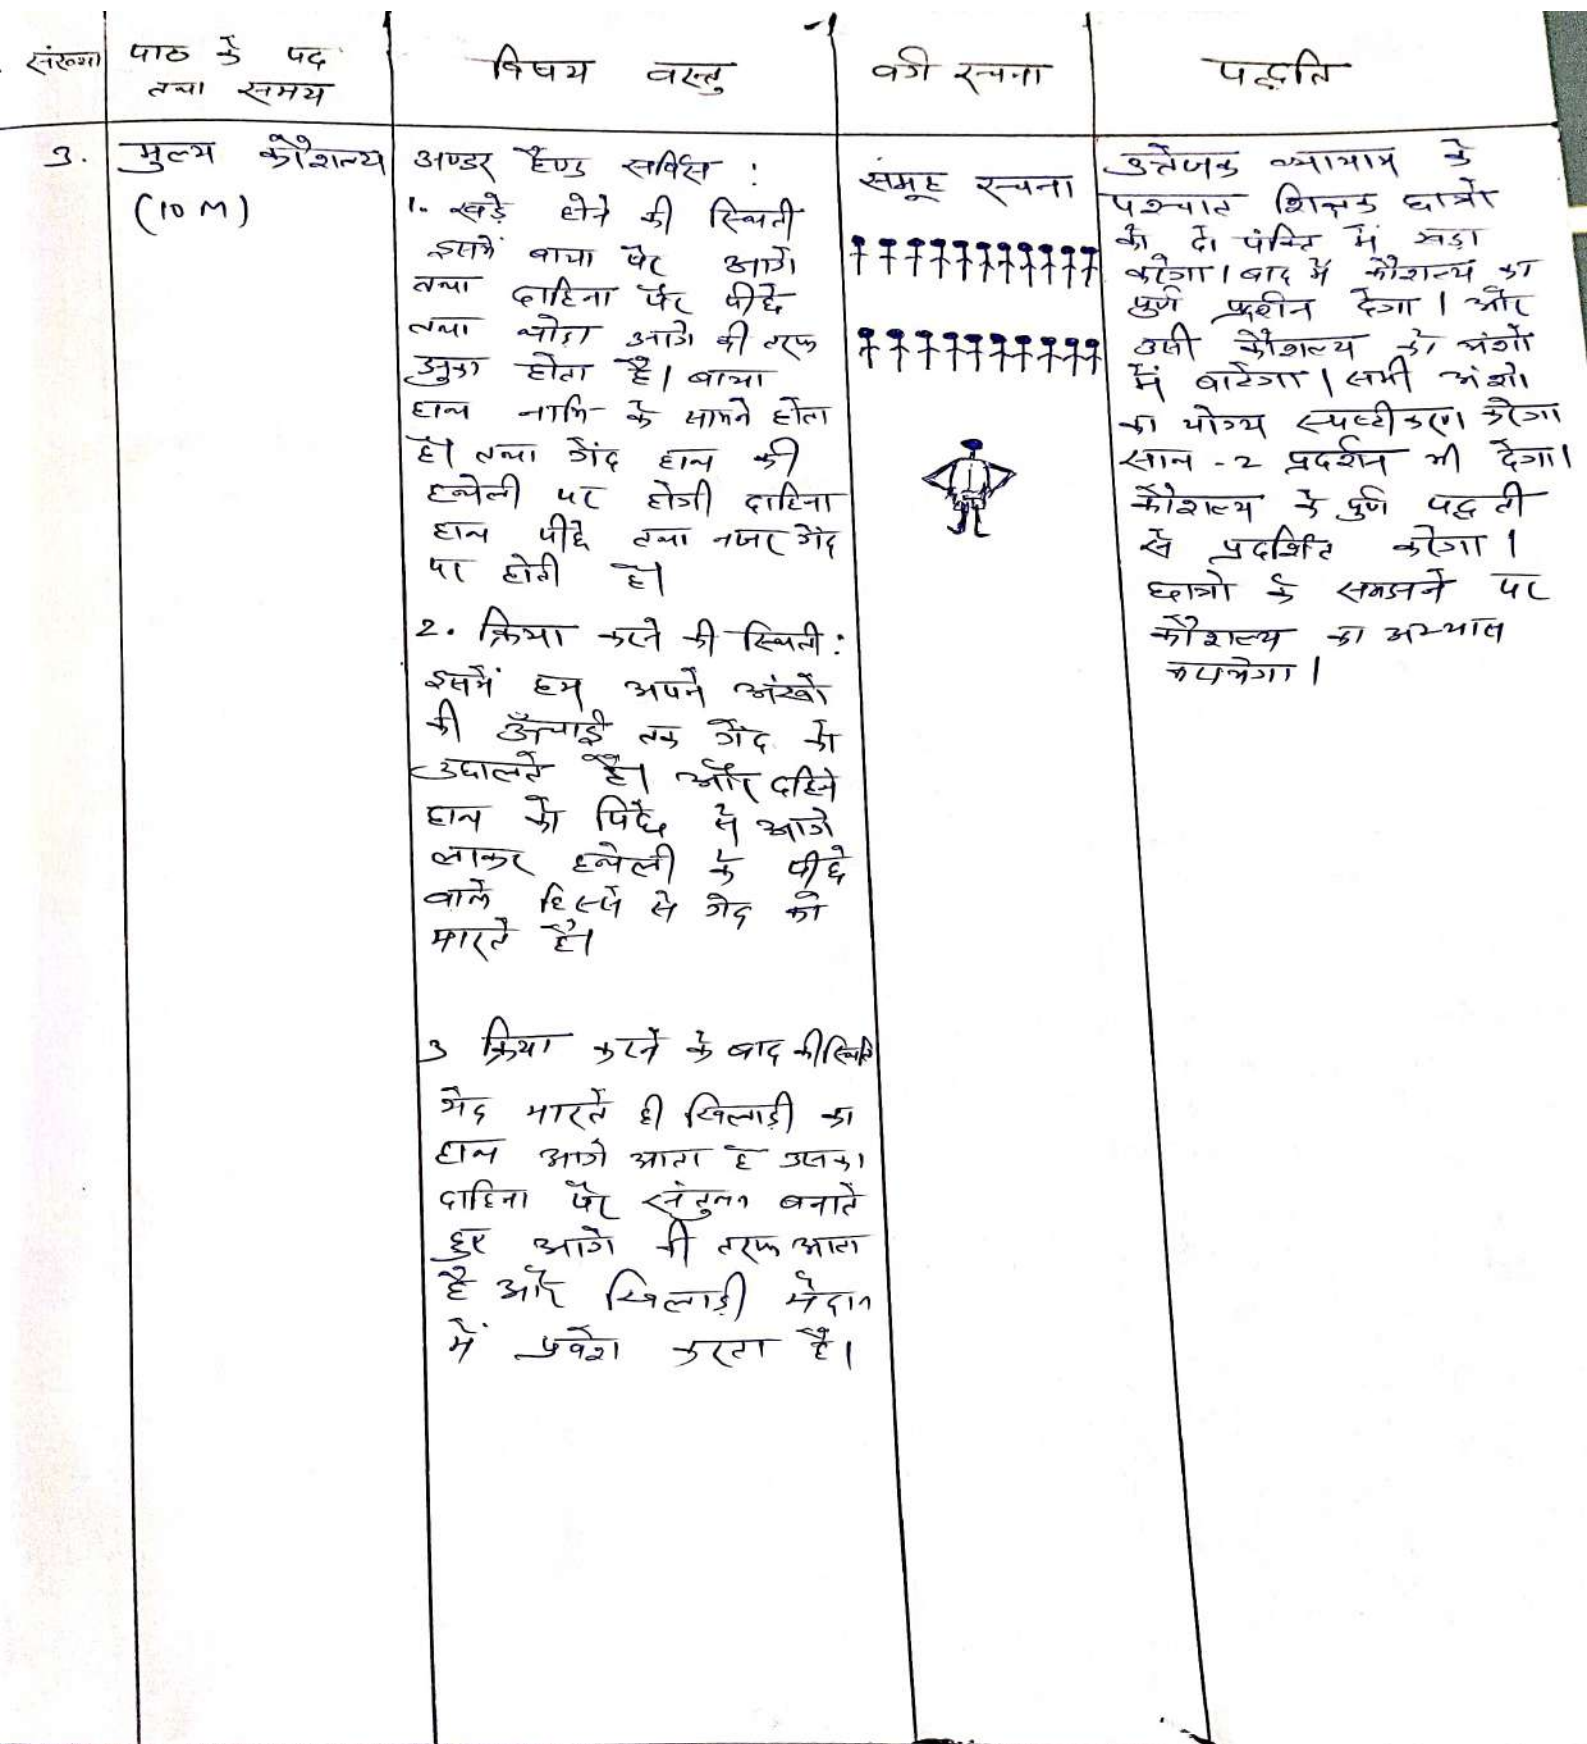 संख्या
पाठ के पद
तथा समय
विषय वस्तु
की रचना
पद्धति
3.
मुल्य कौशल्य
(10 M)
अण्डर हैण्ड सर्विस :
1. खड़े होने की स्थिती
इसमें बाया पैर आगे
तथा दाहिना पैर पीछे
तथा थोडा आगे की तरफ
झुका होता है। बाया
हाथ नाभि के सामने होता
है। तथा गेंद हाथ की
हथेली पर होगी दाहिना
हाथ पीछे तथा नजर गेंद
पर होती है।
2. क्रिया करने की स्थिती :
इसमें हम अपने अंखों
की ऊँचाई तक गेंद को
उछालते है। और दहिने
हाथ को पिछे से आगे
लाकर हथेली के पीछे
वाले हिस्से से गेद को
मारते है।
3 क्रिया करने के बाद की स्थिति
गेद मारते ही खिलाड़ी का
हाथ आगे आता है उसका
दाहिना पैर संतुलन बनाते
हुए आगे की तरफ आता
है और खिलाड़ी मेदान
में प्रवेश करता है।
समूह रचना
उत्तेजक व्यायाम के
पश्चात शिक्षक छात्रो
को दो पंक्ति में खडा
करेगा। बाद में कौशल्य का
पुर्ण प्रदर्शन देगा। और
उसी कौशल्य को अंशो
में बाटेगा। सभी अंशो
का योग्य स्पष्टीकरण करेगा
साथ -2 प्रदर्शन भी देगा।
कौशल्य के पुर्ण पद्धती
से प्रदर्शित करेगा।
छात्रो के समझने पर
कौशल्य का अभ्यास